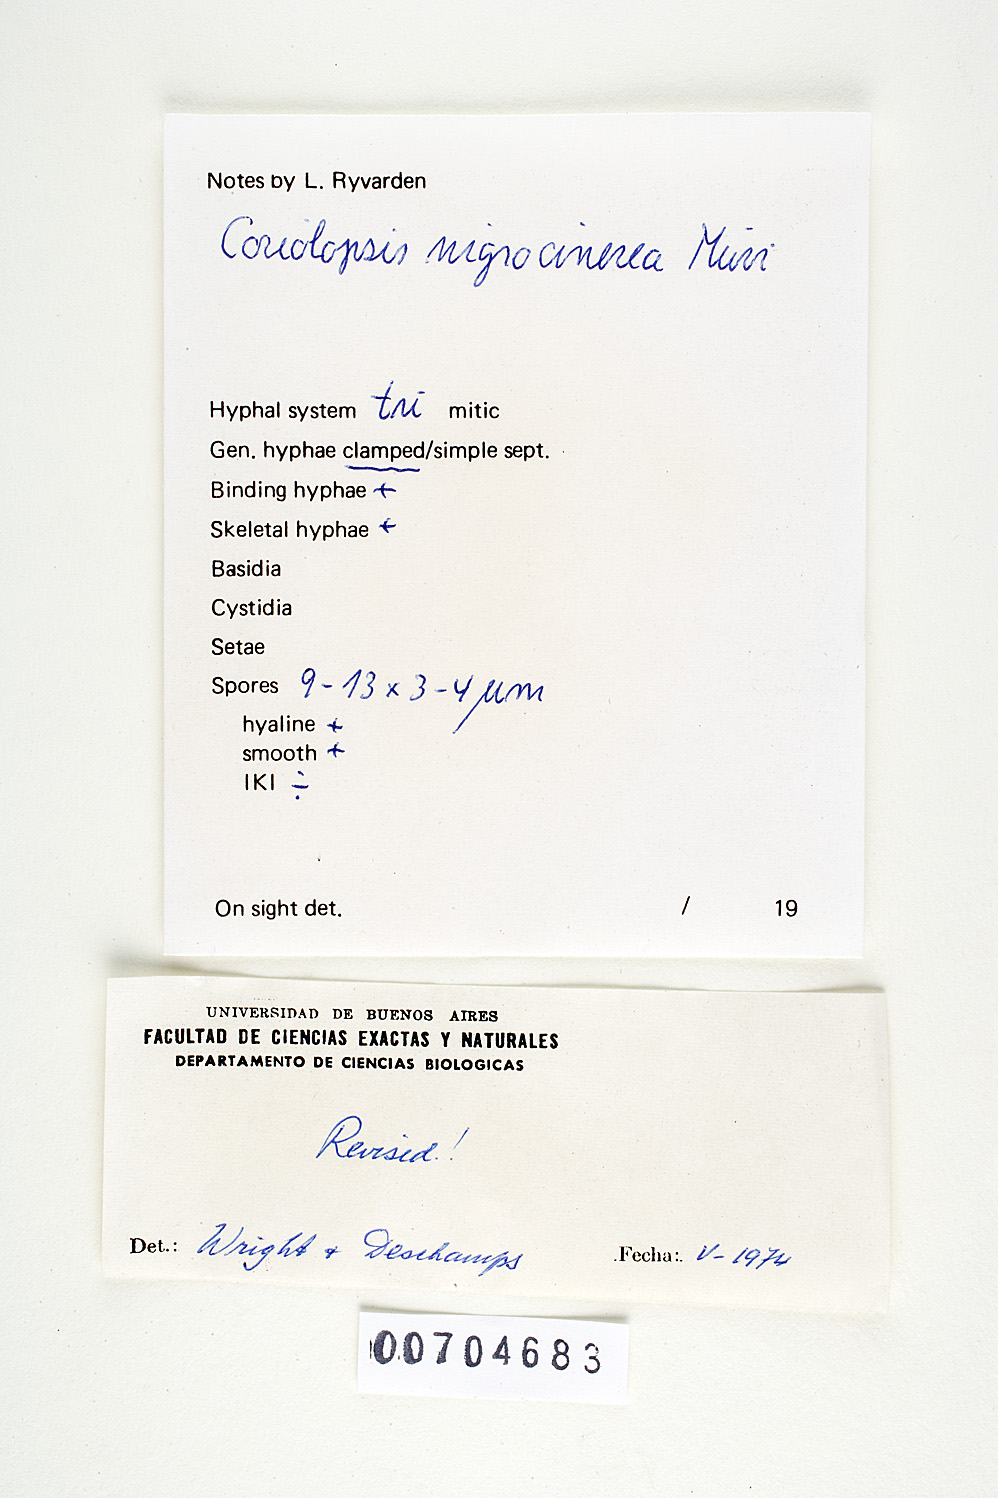 Notes by L. Ryvarden
Coriolopsis nigrocinerea Murr
Hyphal system tri mitic
Gen. hyphae clamped/simple sept.
Binding hyphae +
Skeletal hyphae +
Basidia
Cystidia
Setae
Spores 9-13 x 3-4 µm
hyaline +
smooth +
IKI ÷
On sight det. / 19
UNIVERSIDAD DE BUENOS AIRES
FACULTAD DE CIENCIAS EXACTAS Y NATURALES
DEPARTAMENTO DE CIENCIAS BIOLOGICAS
Revised!
Det.: Wright & Deschamps .Fecha:. V-1974
00704683